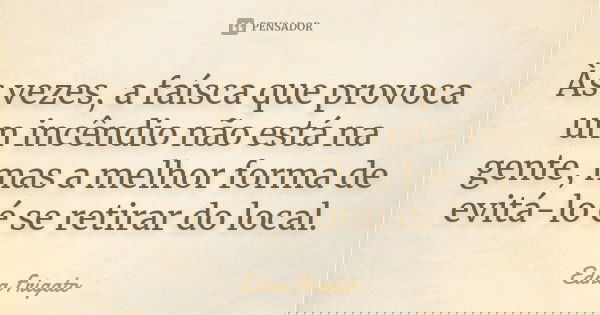 PENSADOR
Às vezes, a faísca que provoca
um incêndio não está na
gente, mas a melhor forma de
evitá-lo é se retirar do local.
Edna Frigato